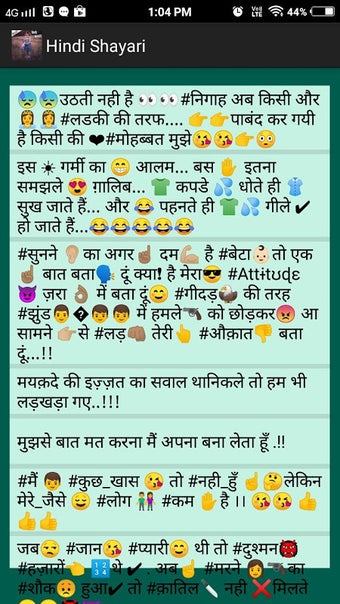 4G 1:04 PM VoLTE LTE 44%
Hindi Shayari
😓😓उठती नही है 👀👀 #निगाह अब किसी और
👰👰 #लडकी की तरफ.... 👉👉पाबंद कर गयी
है किसी की ❤#मोहब्बत मुझे😘😘👉😳
इस ☀ गर्मी का 😁 आलम... बस✋ इतना
समझले 😍 ग़ालिब... 👕 कपडे 💦 धोते ही 👚
सुख जाते हैं... और 😂 पहनते ही 👕💦 गीले ✔
हो जाते हैं...😂😂😂😂😂
#सुनने 👂का अगर☝ दम💪 है #बेटा👶तो एक
☝ बात बता🗣 दूं क्या! है मेरा😎 #Attitude
😈 ज़रा 👌 में बता दूं😊 #गीदड़🐶 की तरह
#झुंड👨�👦👦 में हमले🔫 को छोड़कर😡 आ
सामने 👉से #लड़👊 तेरी👆 #औक़ात👎 बता
दूं...!!
मयक़दे की इज़्ज़त का सवाल थानिकले तो हम भी
लड़खड़ा गए..!!!
मुझसे बात मत करना मैं अपना बना लेता हूँ .!!
#मैं 👦 #कुछ_खास 😘 तो #नही_हुँ ☝🤔लेकिन
मेरे_जैसे 😌 #लोग 👫 #कम ✋है ।। 😘😘 👍
👍👍
जब😔 #जान😘 #प्यारी😊 थी तो #दुश्मन👹
#हज़ारों👈 🔢थे ✔ . अब☝ #मरने 👩🔫का
#शौक😡 हुआ✔ तो #क़ातिल🔪 नही ❌मिलते